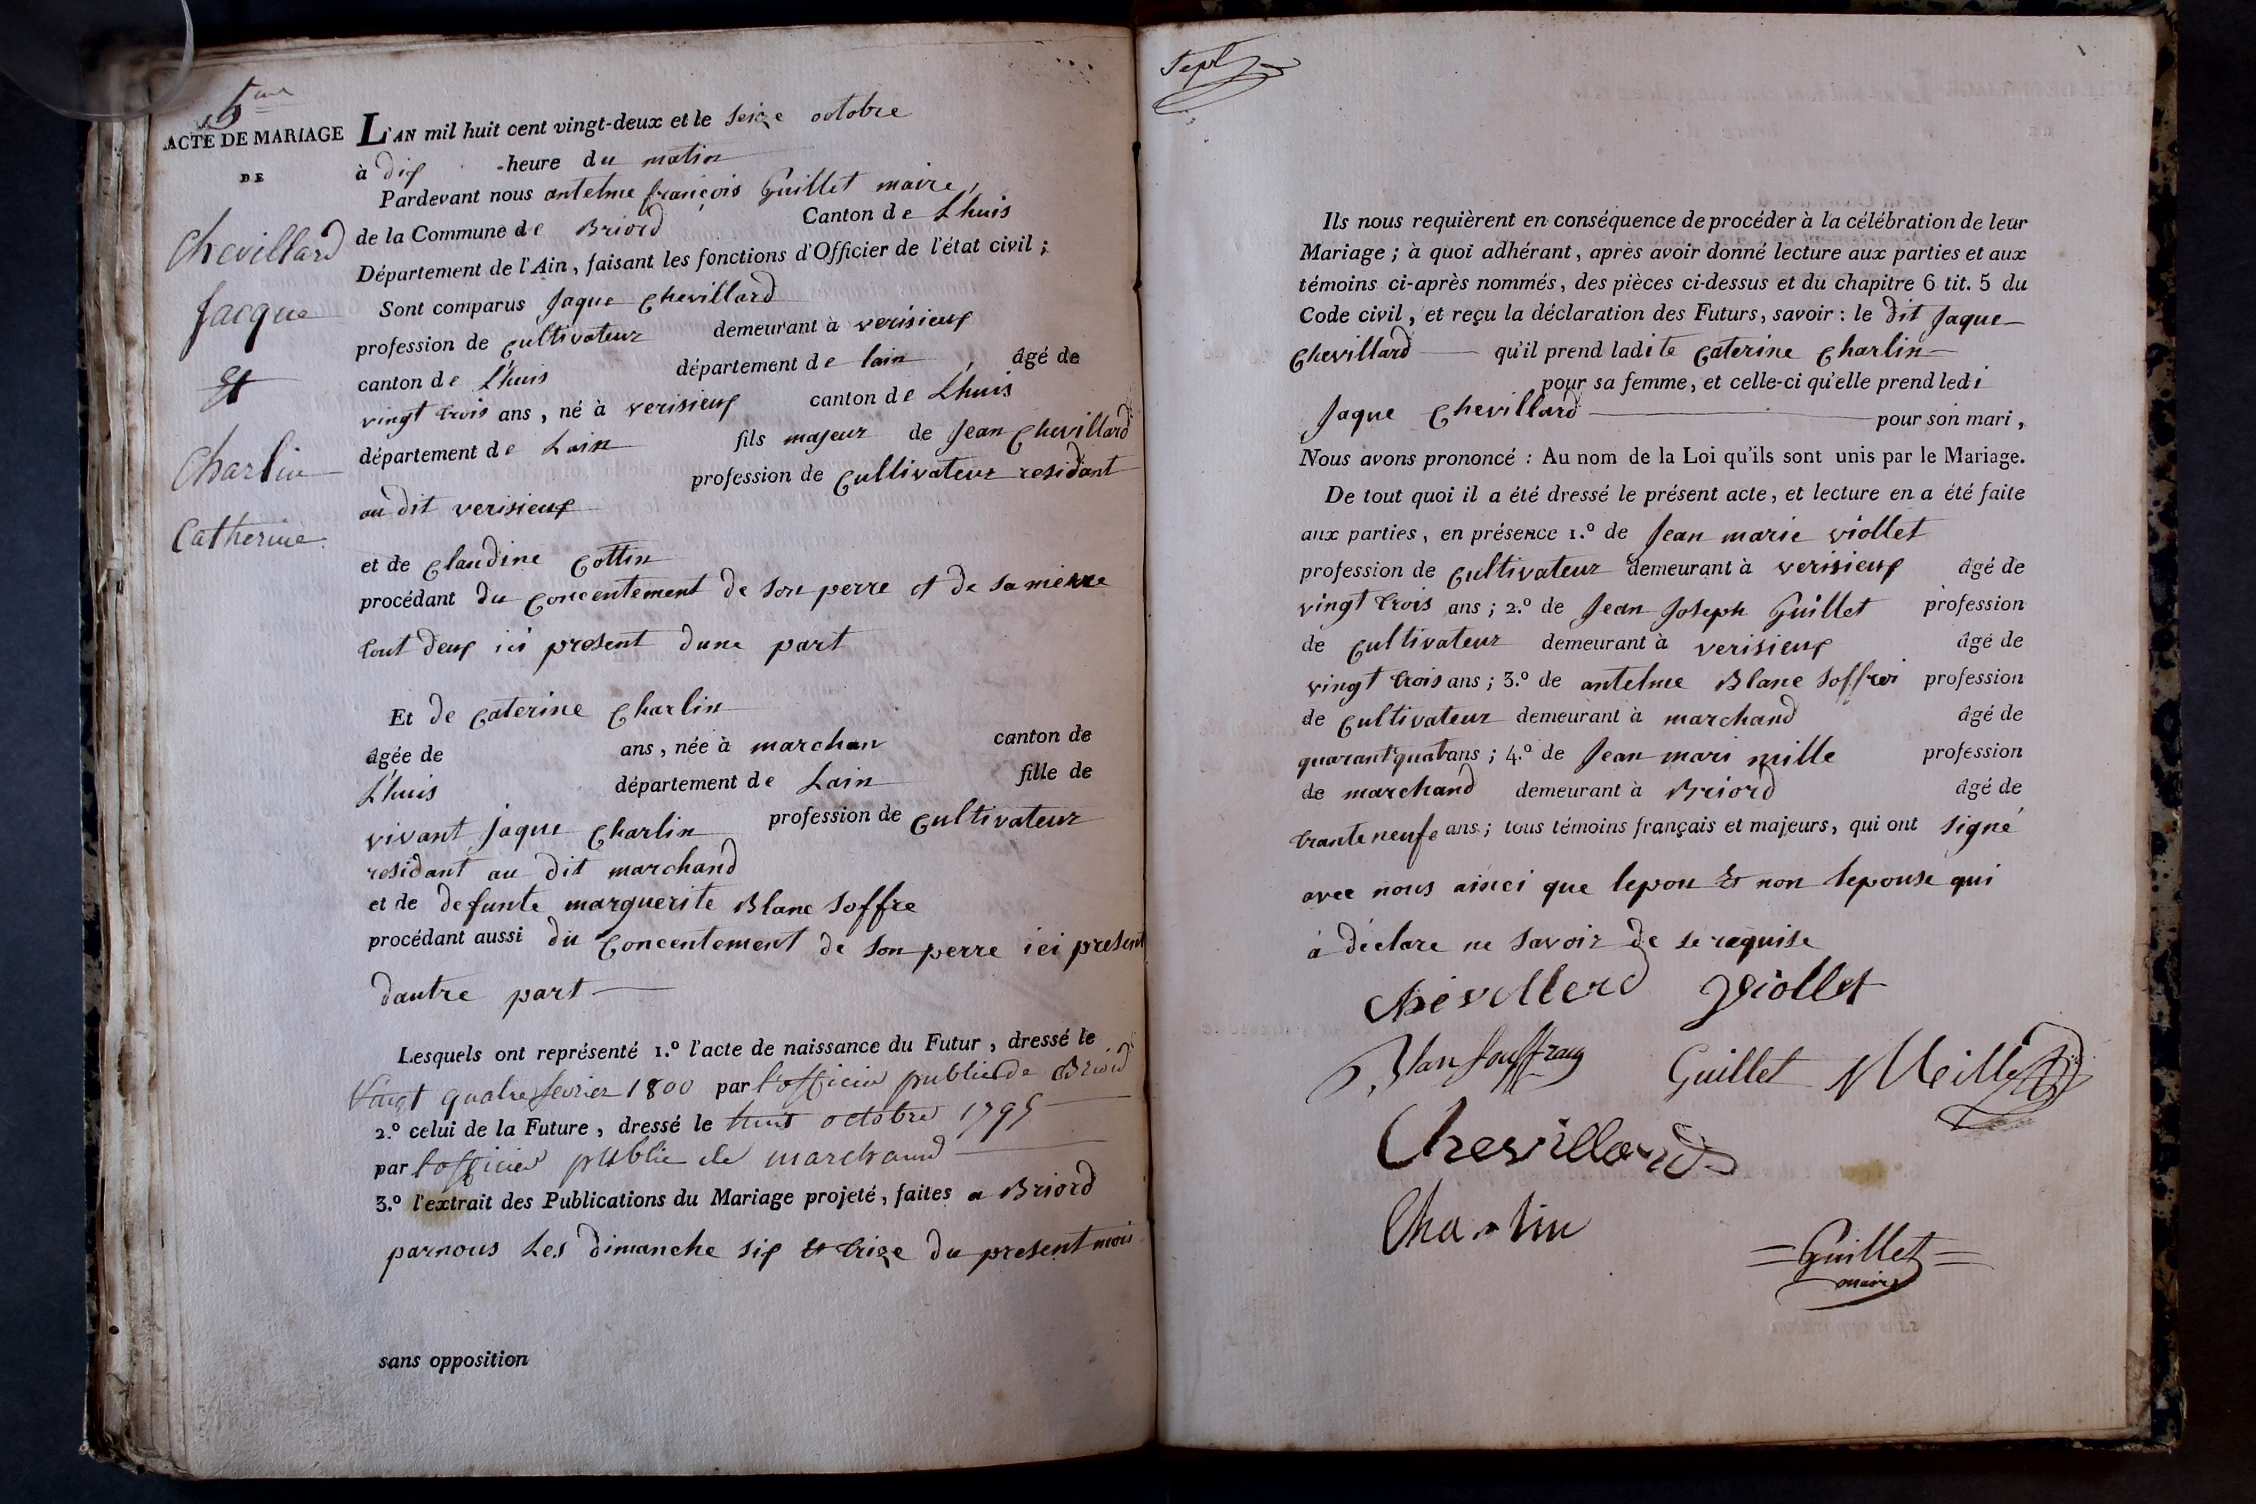 5me
ACTE DE MARIAGE
DE
Chevillard
Jacque
Et
Charlin
Catherine.
L'AN mil huit cent vingt-deux et le seize octobre
à dix heure du matin
Pardevant nous antelme françois Guillet maire,
de la Commune de Briord Canton de Lhuis
Département de l'Ain, faisant les fonctions d'Officier de l'état civil ;
Sont comparus Jaque Chevillard
profession de Cultivateur demeurant à verisieux
canton de L'huis département de lain, âgé de
vingt trois ans, né à verisieux canton de Lhuis
département de Lain fils majeur de Jean Chevillard
profession de Cultivateur residant
au dit verisieux
et de Claudine Cottin
procédant du Concentement de son perre et de sa merre
tout deux ici present dune part
Et de Caterine Charlin
âgée de ans, née à marchan canton de
L'huis département de Lain fille de
vivant Jaque Charlin profession de Cultivateur
residant au dit marchand
et de defunte marguerite Blanc Soffre
procédant aussi du Concentement de son perre ici present
dautre part
Lesquels ont représenté 1.º l'acte de naissance du Futur, dressé le
Vingt quatre fevrier 1800 par l'officier public de Briord
2.º celui de la Future, dressé le huit octobre 1795
par l'officier public de marchand
3.º l'extrait des Publications du Mariage projeté, faites a Briord
par nous Les dimanche six et trize du present mois
sans opposition
Sept
Ils nous requièrent en conséquence de procéder à la célébration de leur
Mariage ; à quoi adhérant, après avoir donné lecture aux parties et aux
témoins ci-après nommés, des pièces ci-dessus et du chapitre 6 tit. 5 du
Code civil, et reçu la déclaration des Futurs, savoir : le dit Jaque
Chevillard qu'il prend ladite Caterine Charlin
pour sa femme, et celle-ci qu'elle prend ledi
Jaque Chevillard pour son mari,
Nous avons prononcé : Au nom de la Loi qu'ils sont unis par le Mariage.
De tout quoi il a été dressé le présent acte, et lecture en a été faite
aux parties, en présence 1.º de Jean marie viollet
profession de Cultivateur demeurant à verisieux âgé de
vingt trois ans ; 2.º de Jean Joseph Guillet profession
de Cultivateur demeurant à verisieux âgé de
vingt trois ans ; 3.º de antelme Blanc Soffroi profession
de Cultivateur demeurant à marchand âgé de
quarant quat ans ; 4.º de Jean mari mille profession
de marchand demeurant à Briord âgé de
trante neufe ans ; tous témoins français et majeurs, qui ont signé
avec nous ainci que lepou et non lepouse qui
à déclare ne savoir de se requise
Chevillerd Viollet
Guillet Millet
Chevillard
Charlin
Guillet
maire